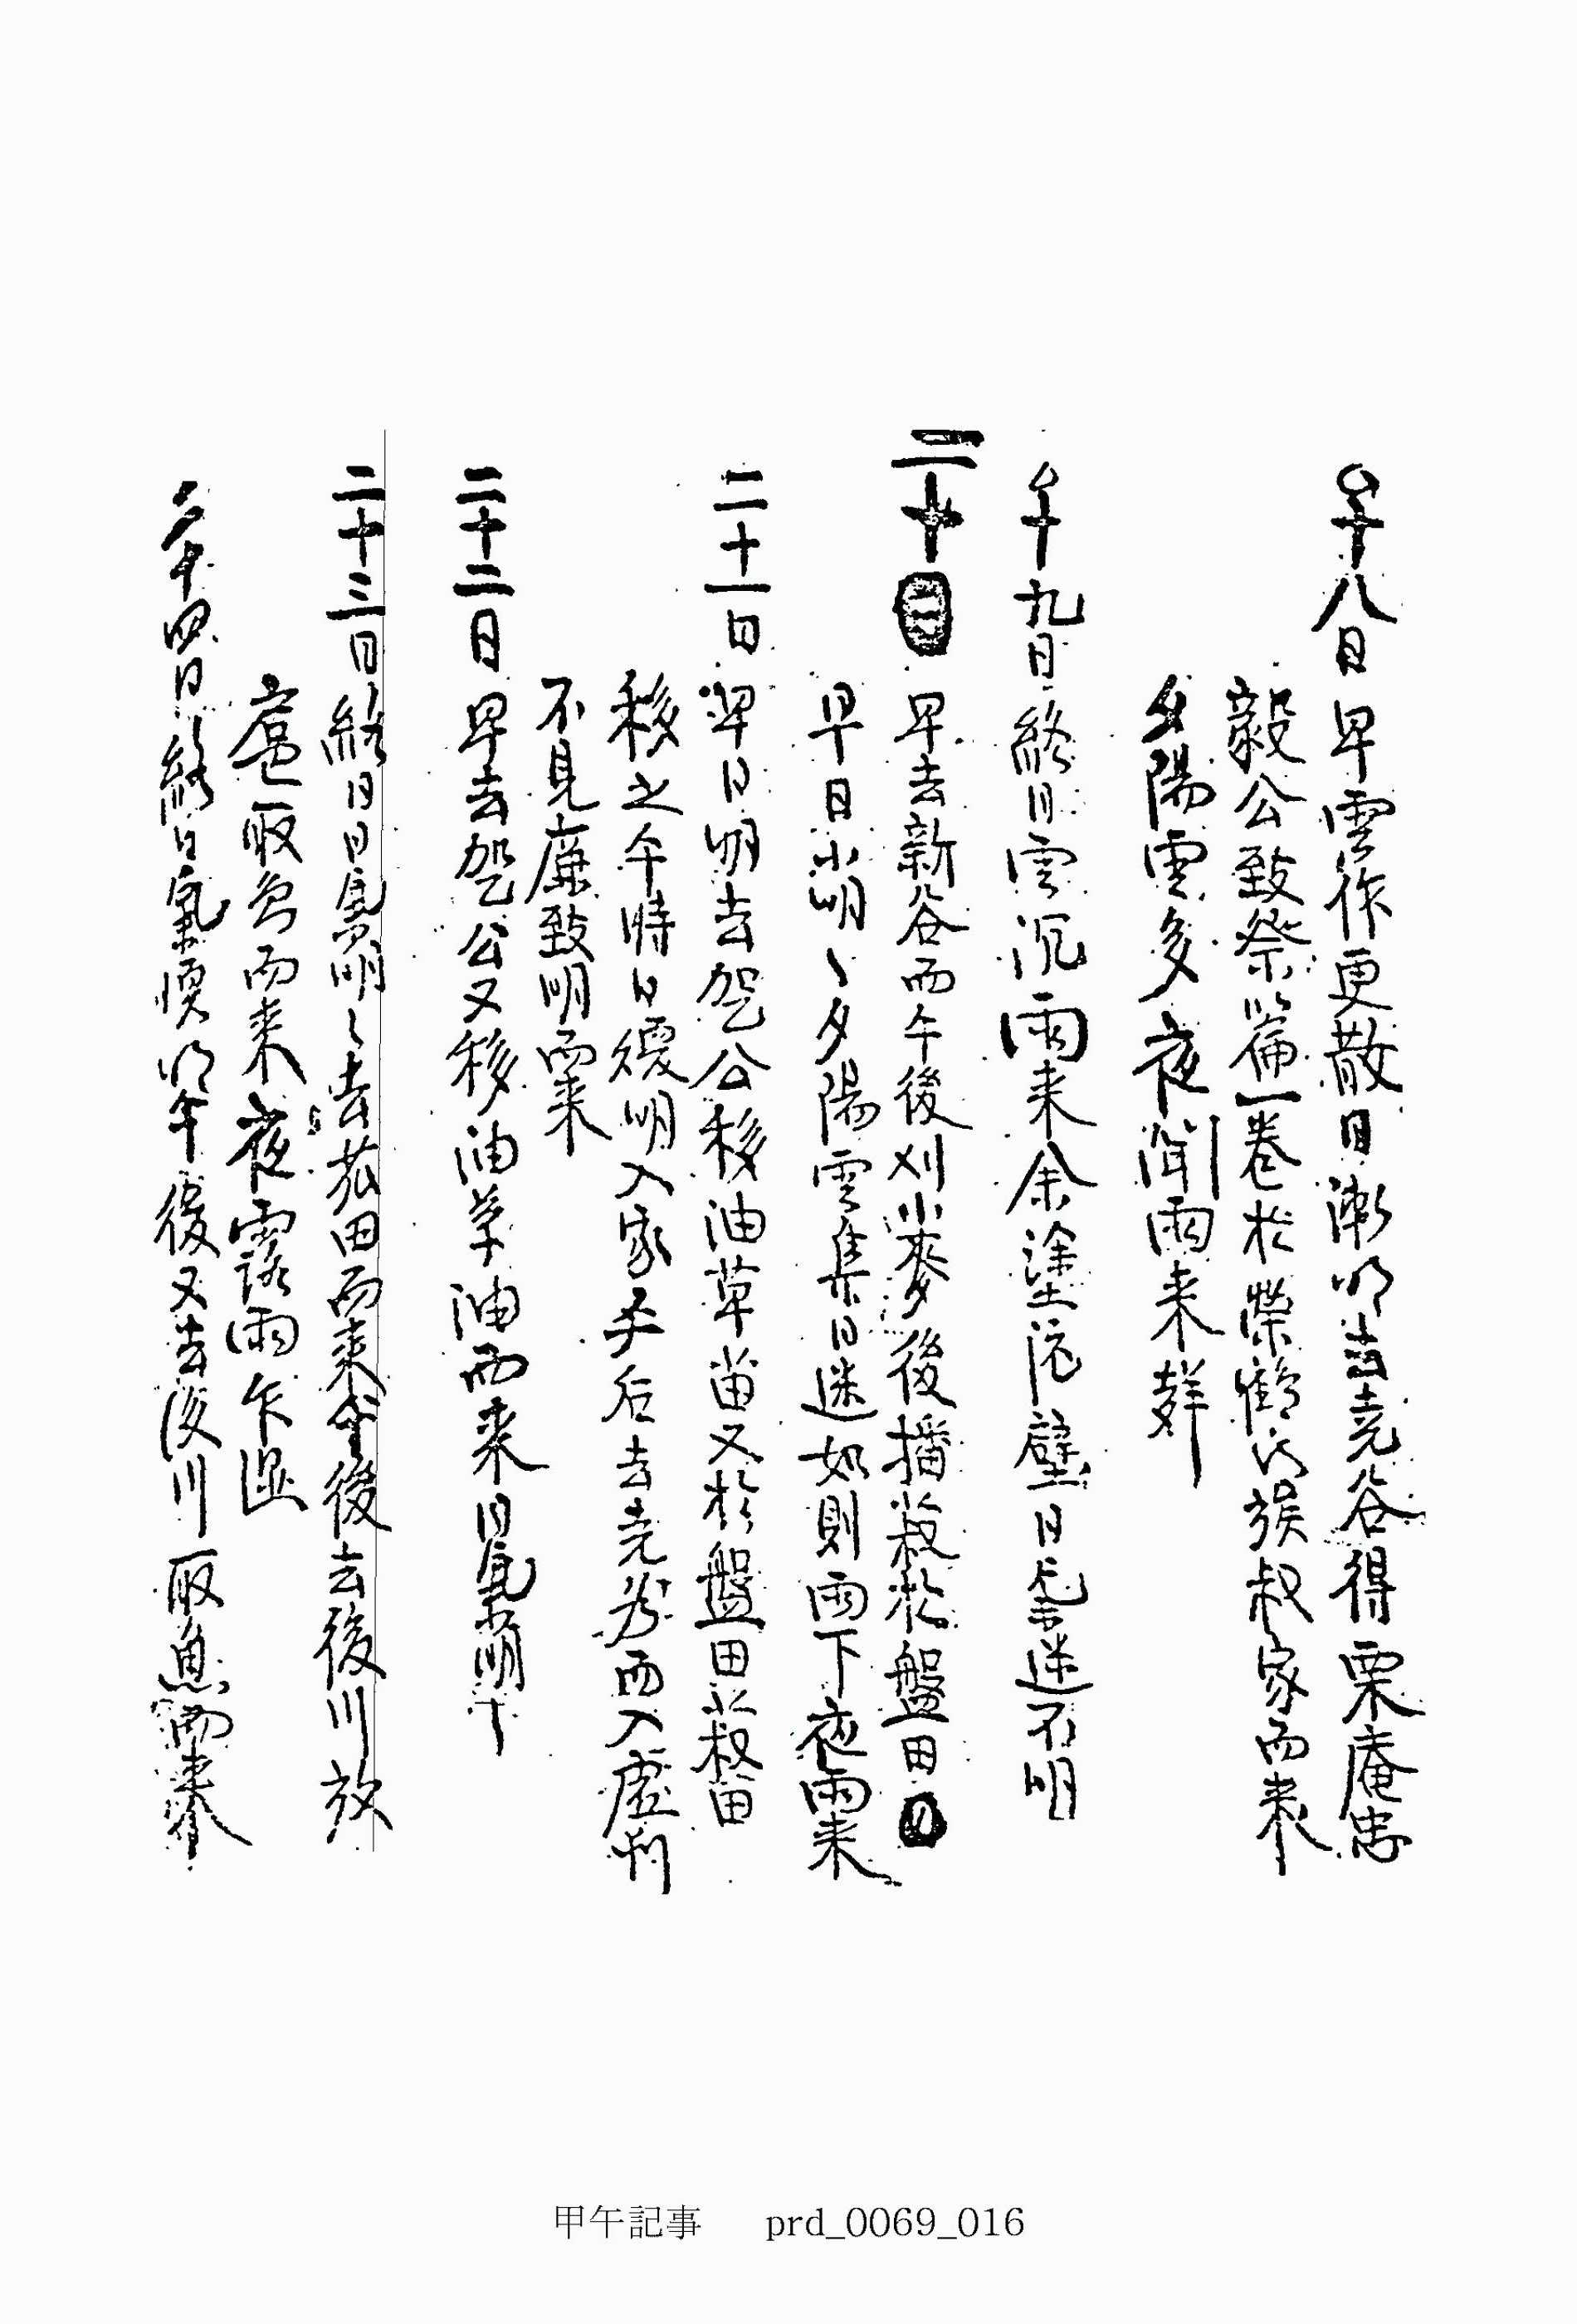 十八日 早雲作更散日漸明去堯谷得栗庵忠
毅公致祭篇一卷於榮鶴氏族叔家而來
夕陽雲多夜聞雨来
十九日終日雲沉雨来余塗泥壁日氣迷不明
二十日 早去新谷而午後刈小麥後播菽於盤田
早日小明〻夕陽雲集日迷如則雨下夜雨来
二十一日 早日明去公移油草苗又於盤田菽田
移之午時日煖明入家手后去堯而入虛判
不見廉致明而来
二十二日 早去公又移油草油而来日氣小明
二十三日終日日氣明〻去菰田而来後去後川放
取魚而来夜露雨乍濕
二十四日終日日氣煖明午後又去後川取魚而来
甲午記事 prd_0069_016